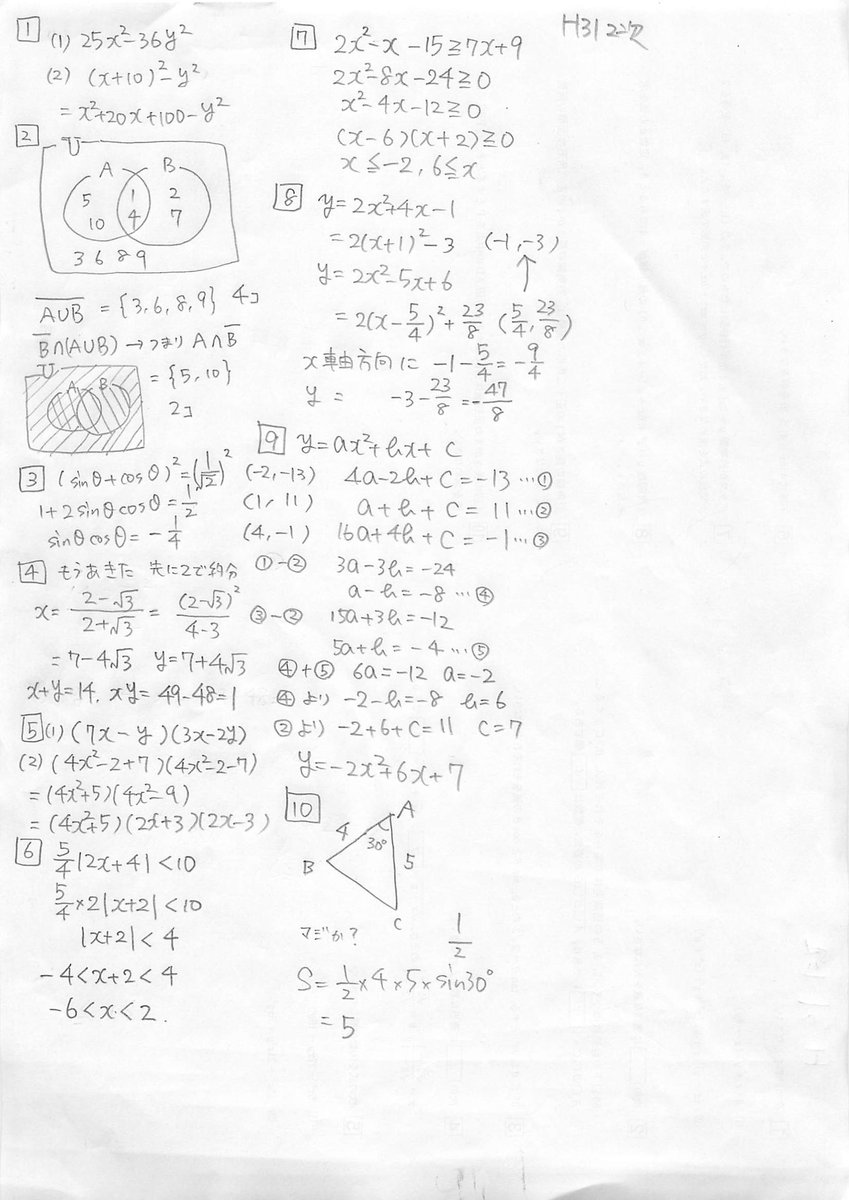 H31 2次
1 (1) 25x²-36y²
(2) (x+10)²-y²
=x²+20x+100-y²
2
U
A B
5 1 2
10 4 7
3 6 8 9
A∪B = {3,6,8,9} 4コ
B∩(A∪B) → つまり A∩B
U
A B
= {5,10}
2コ
3 (sinθ+cosθ)²=(1/√2)²
1+2sinθcosθ=1/2
sinθcosθ=-1/4
4 もうあきた 先に2で約分
x= (2-√3)/(2+√3) = (2-√3)²/(4-3)
=7-4√3 y=7+4√3
x+y=14, xy=49-48=1
5 (1) (7x-y)(3x-2y)
(2) (4x²-2+7)(4x²-2-7)
=(4x²+5)(4x²-9)
=(4x²+5)(2x+3)(2x-3)
6 5/4|2x+4|<10
5/4×2|x+2|<10
|x+2|<4
-4<x+2<4
-6<x<2.
7 2x²-x-15≧7x+9
2x²-8x-24≧0
x²-4x-12≧0
(x-6)(x+2)≧0
x≦-2, 6≦x
8 y=2x²+4x-1
=2(x+1)²-3 (-1,-3)
y=2x²-5x+6 ↑
=2(x-5/4)²+23/8 (5/4, 23/8)
x軸方向に -1-5/4=-9/4
y = -3-23/8=-47/8
9 y=ax²+bx+c
(-2,-13) 4a-2b+c=-13…①
(1,11) a+b+c=11…②
(4,-1) 16a+4b+c=-1…③
①-② 3a-3b=-24
a-b=-8…④
③-② 15a+3b=-12
5a+b=-4…⑤
④+⑤ 6a=-12 a=-2
④より -2-b=-8 b=6
②より -2+6+c=11 c=7
y=-2x²+6x+7
10
A
4 30°
B 5
C
マジか?
1/2
S=1/2×4×5×sin30°
=5